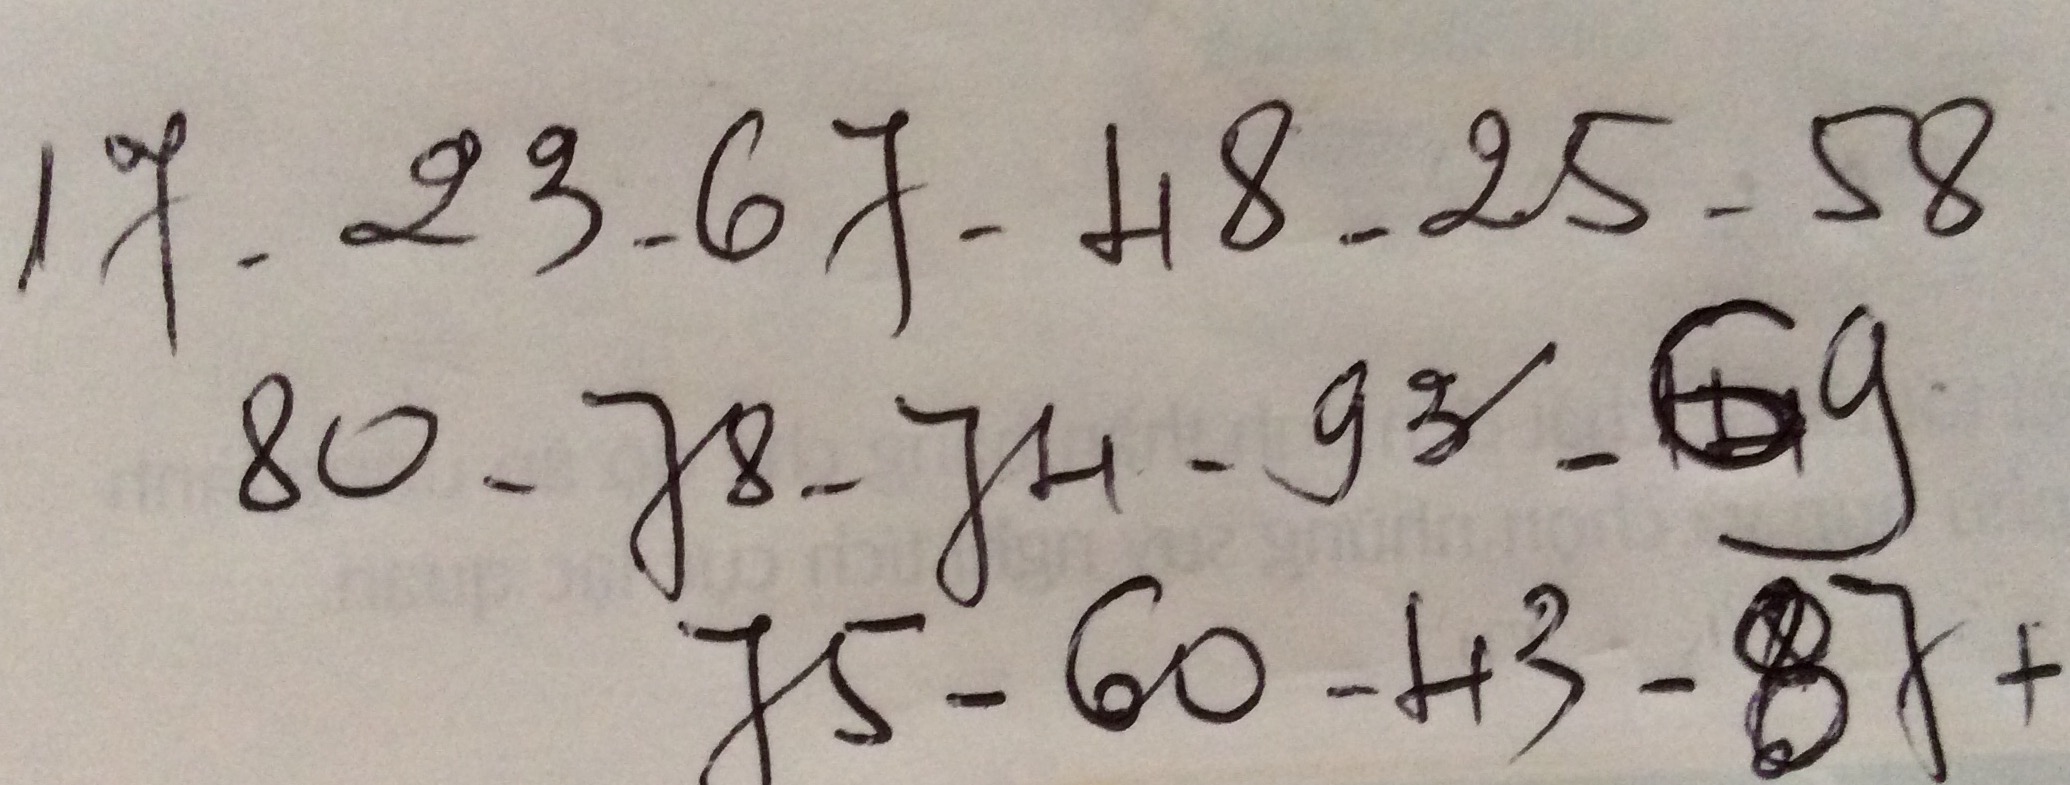 17 - 23 - 67 - 48 - 25 - 58
80 - 78 - 74 - 93 - 69
75 - 60 - 43 - 87 +